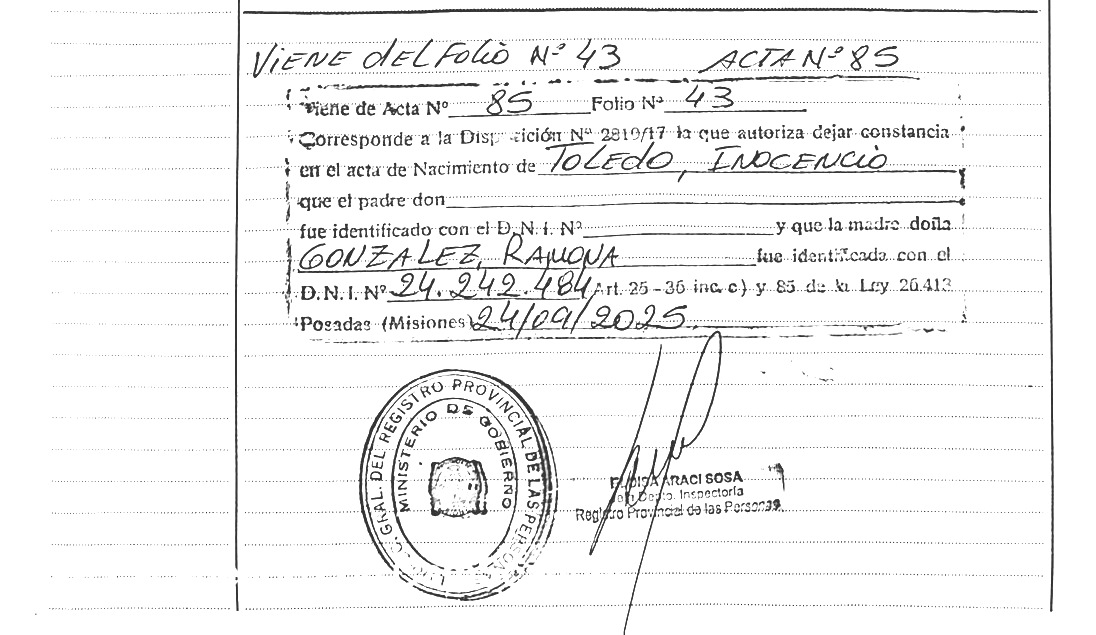 VIENE del Folio Nº 43 ACTA Nº 85
Viene de Acta Nº 85 Folio Nº 43
Corresponde a la Disposición Nº 2819/17 la que autoriza dejar constancia
en el acta de Nacimiento de TOLEDO, INOCENCIO
que el padre don
fue identificado con el D.N.I. Nº y que la madre doña
GONZALEZ, RAMONA fue identificada con el
D.N.I. Nº 24.242.484 Art. 25 - 36 inc. c) y 85 de la Ley 26.413
Posadas (Misiones) 24/09/2025.
GRAL. DEL REGISTRO PROVINCIAL DE LAS PERSONAS
MINISTERIO DE GOBIERNO
ARACI SOSA
Jefa Depto. Inspectoría
Registro Provincial de las Personas